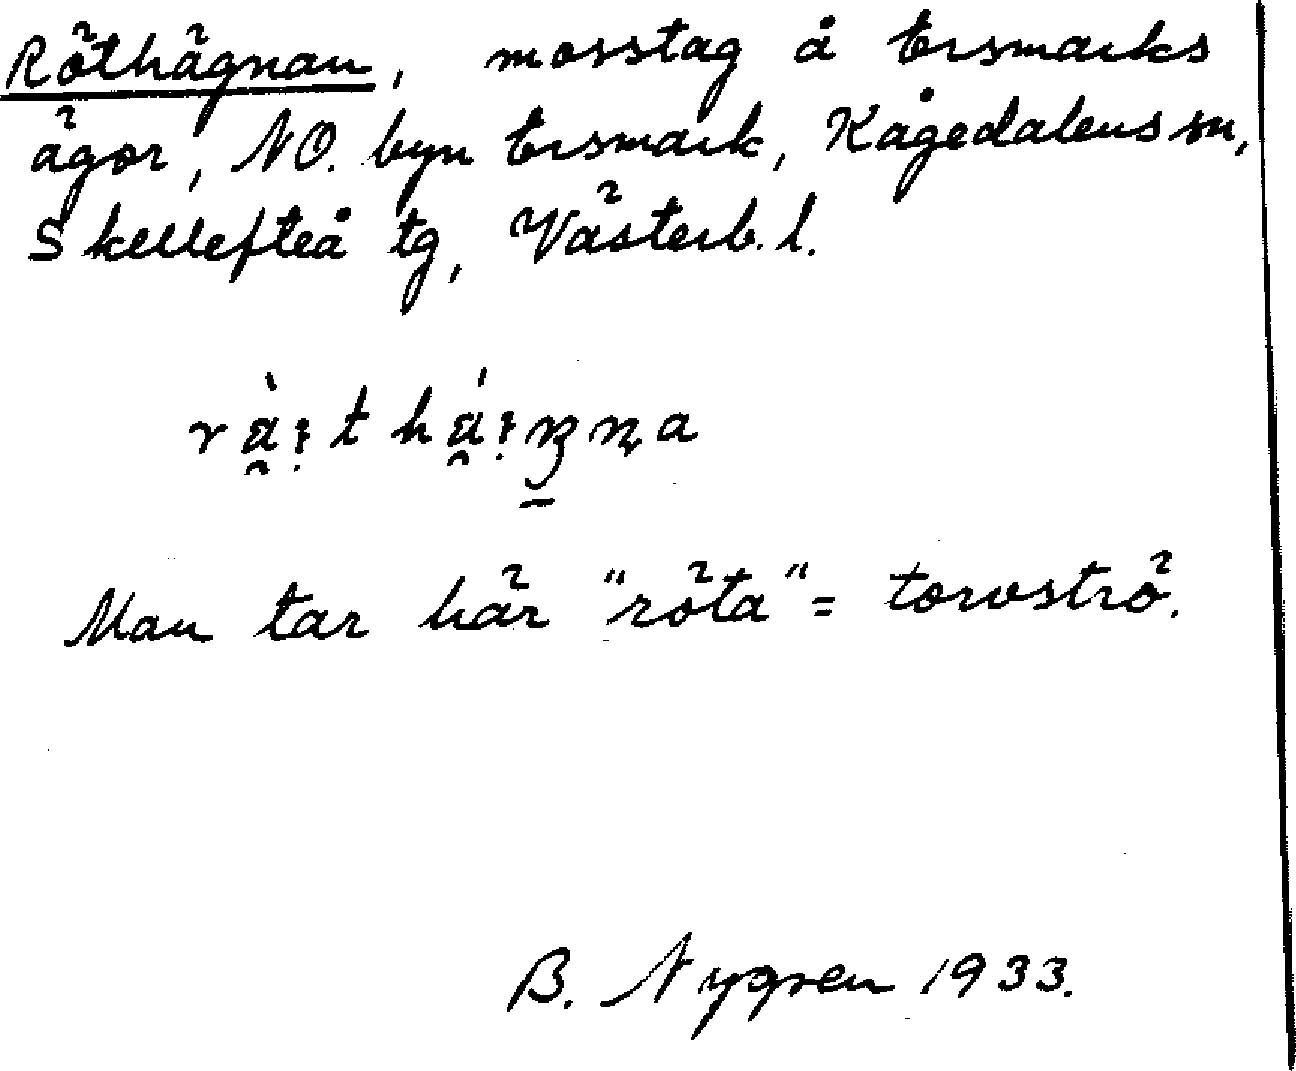 Röthägnan, mosstag å Ersmarks
ägor, NO. byn Ersmark, Kågedalens sn,
Skellefteå tg, Västerb. l.
Man tar här "röta" = torvströ.
B. Nygren 1933.